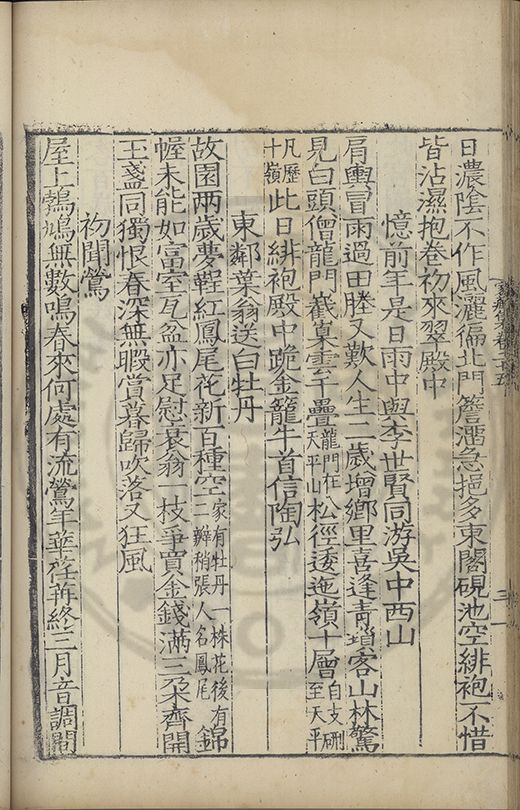 日濃陰不作風灑徧北門簷溜急挹多東閣硯池空緋袍不惜
皆沾濕抱卷初來翠殿中
憶前年是日雨中與李世賢同游吳中西山
肩輿冒雨過田塍又歎人生二歲增鄉里喜逢青瑣客山林驚
見白頭僧龍門雲千疊龍門在天平山松徑逶迤嶺十層自支硎至天平
凡歷十嶺此日緋袍殿中跪金籠牛首信陶弘
東鄰葉翁送白牡丹
故園两歲夢鞓紅鳳尾花新百種空家有牡丹一株花後有二瓣稍張人名鳳尾錦
幄未能如富室瓦盆亦足慰衰翁一枝爭買金錢滿三朶齊開
玉盞同獨恨春深無暇賞暮歸吹落又狂風
初聞鶯
屋上鵓鳩無數鳴春來何處有流鶯年華荏苒終三月音調間